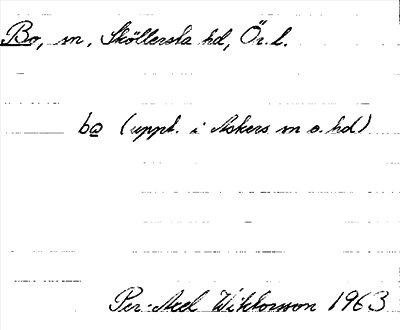 Bo, sn, Sköllersta hd, Ör. l.
bo (uppt. i Askers sn o. hd)
Per-Axel Wiktorsson 1963